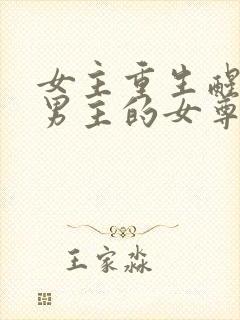 女主重生醒
男主的女尊
王家淼